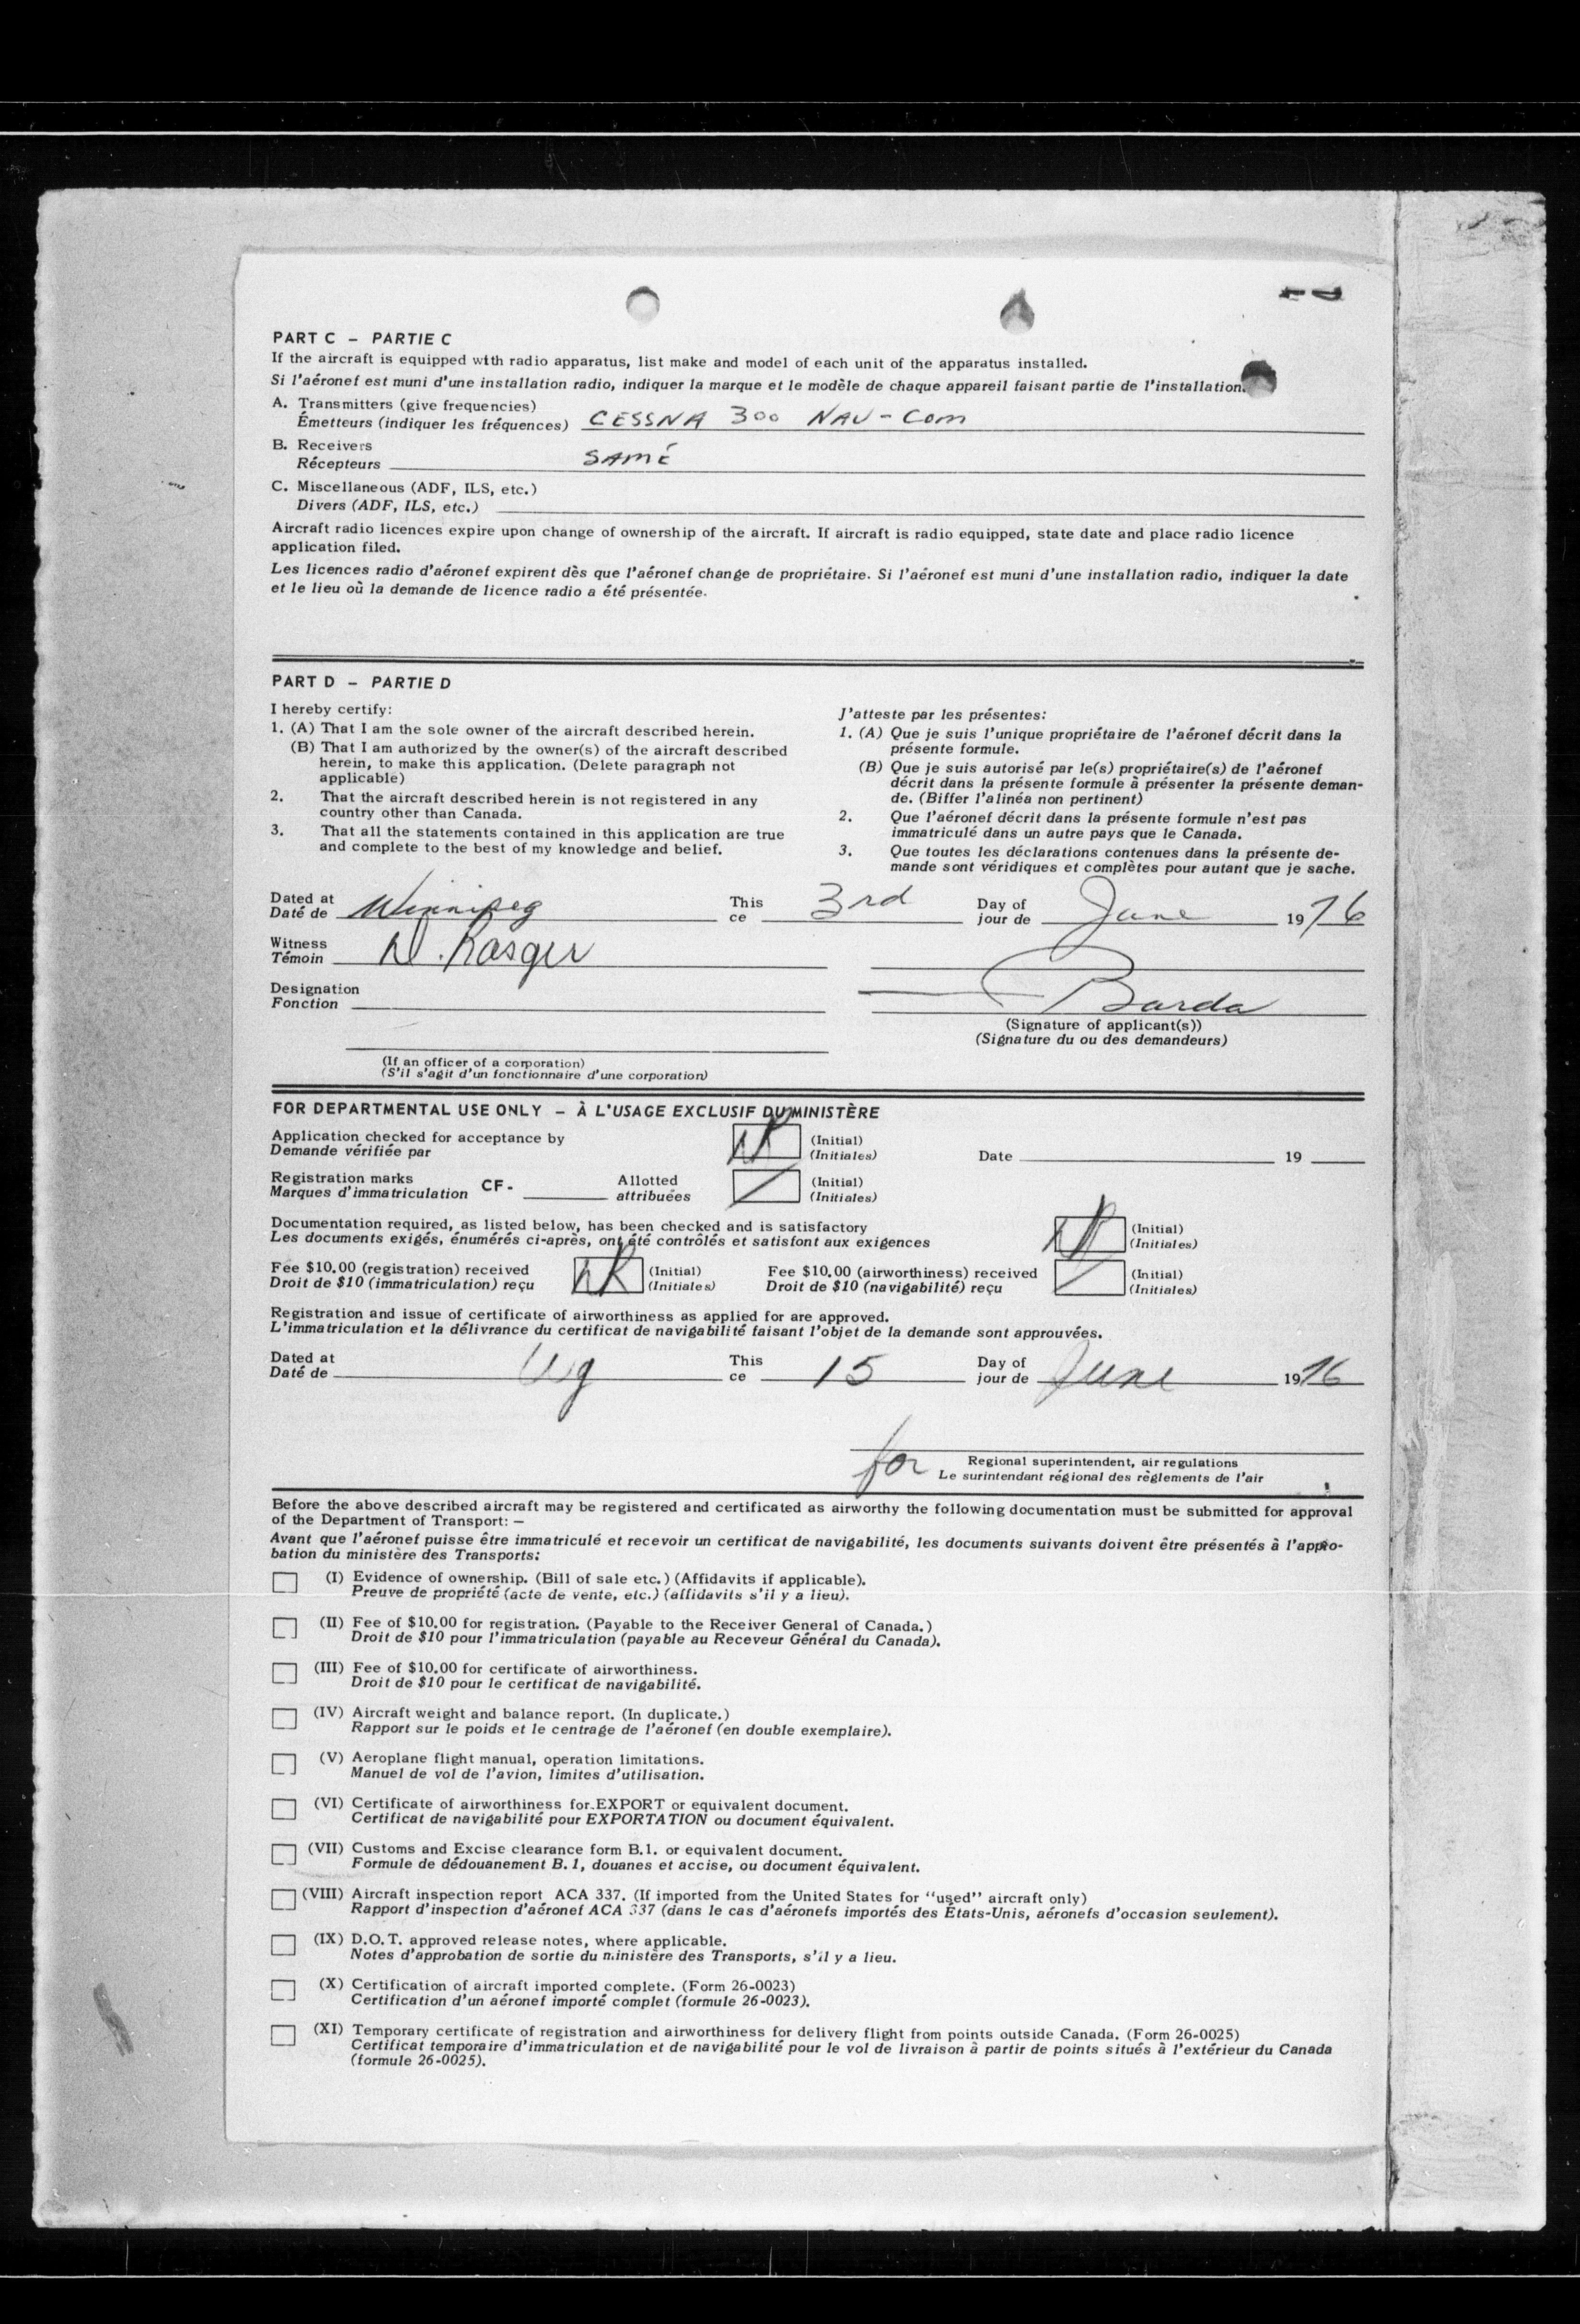 PART C – PARTIE C
If the aircraft is equipped with radio apparatus, list make and model of each unit of the apparatus installed.
Si l'aéronef est muni d'une installation radio, indiquer la marque et le modèle de chaque appareil faisant partie de l'installation.
A. Transmitters (give frequencies)
Émetteurs (indiquer les fréquences) CESSNA 300 NAV-COM
B. Receivers
Récepteurs SAME
C. Miscellaneous (ADF, ILS, etc.)
Divers (ADF, ILS, etc.)
Aircraft radio licences expire upon change of ownership of the aircraft. If aircraft is radio equipped, state date and place radio licence
application filed.
Les licences radio d'aéronef expirent dès que l'aéronef change de propriétaire. Si l'aéronef est muni d'une installation radio, indiquer la date
et le lieu où la demande de licence radio a été présentée.
PART D – PARTIE D
I hereby certify:
1. (A) That I am the sole owner of the aircraft described herein.
(B) That I am authorized by the owner(s) of the aircraft described
herein, to make this application. (Delete paragraph not
applicable)
2. That the aircraft described herein is not registered in any
country other than Canada.
3. That all the statements contained in this application are true
and complete to the best of my knowledge and belief.
J'atteste par les présentes:
1. (A) Que je suis l'unique propriétaire de l'aéronef décrit dans la
présente formule.
(B) Que je suis autorisé par le(s) propriétaire(s) de l'aéronef
décrit dans la présente formule à présenter la présente deman-
de. (Biffer l'alinéa non pertinent)
2. Que l'aéronef décrit dans la présente formule n'est pas
immatriculé dans un autre pays que le Canada.
3. Que toutes les déclarations contenues dans la présente de-
mande sont véridiques et complètes pour autant que je sache.
Dated at This Day of
Daté de Winnipeg ce 3rd jour de June 1976
Witness
Témoin
Designation
Fonction Barda
(Signature of applicant(s))
(Signature du ou des demandeurs)
(If an officer of a corporation)
(S'il s'agit d'un fonctionnaire d'une corporation)
FOR DEPARTMENTAL USE ONLY – À L'USAGE EXCLUSIF DU MINISTÈRE
Application checked for acceptance by (Initial)
Demande vérifiée par (Initiales) Date 19
Registration marks CF- Allotted (Initial)
Marques d'immatriculation attribuées (Initiales)
Documentation required, as listed below, has been checked and is satisfactory (Initial)
Les documents exigés, énumérés ci-après, ont été contrôlés et satisfont aux exigences (Initiales)
Fee $10.00 (registration) received (Initial) Fee $10.00 (airworthiness) received (Initial)
Droit de $10 (immatriculation) reçu (Initiales) Droit de $10 (navigabilité) reçu (Initiales)
Registration and issue of certificate of airworthiness as applied for are approved.
L'immatriculation et la délivrance du certificat de navigabilité faisant l'objet de la demande sont approuvées.
Dated at This Day of
Daté de Wg ce 15 jour de June 1976
for Regional superintendent, air regulations
Le surintendant régional des règlements de l'air
Before the above described aircraft may be registered and certificated as airworthy the following documentation must be submitted for approval
of the Department of Transport: –
Avant que l'aéronef puisse être immatriculé et recevoir un certificat de navigabilité, les documents suivants doivent être présentés à l'appro-
bation du ministère des Transports:
(I) Evidence of ownership. (Bill of sale etc.) (Affidavits if applicable).
Preuve de propriété (acte de vente, etc.) (affidavits s'il y a lieu).
(II) Fee of $10.00 for registration. (Payable to the Receiver General of Canada.)
Droit de $10 pour l'immatriculation (payable au Receveur Général du Canada).
(III) Fee of $10.00 for certificate of airworthiness.
Droit de $10 pour le certificat de navigabilité.
(IV) Aircraft weight and balance report. (In duplicate.)
Rapport sur le poids et le centrage de l'aéronef (en double exemplaire).
(V) Aeroplane flight manual, operation limitations.
Manuel de vol de l'avion, limites d'utilisation.
(VI) Certificate of airworthiness for EXPORT or equivalent document.
Certificat de navigabilité pour EXPORTATION ou document équivalent.
(VII) Customs and Excise clearance form B.1. or equivalent document.
Formule de dédouanement B.1, douanes et accise, ou document équivalent.
(VIII) Aircraft inspection report ACA 337. (If imported from the United States for "used" aircraft only)
Rapport d'inspection d'aéronef ACA 337 (dans le cas d'aéronefs importés des États-Unis, aéronefs d'occasion seulement).
(IX) D.O.T. approved release notes, where applicable.
Notes d'approbation de sortie du ministère des Transports, s'il y a lieu.
(X) Certification of aircraft imported complete. (Form 26-0023)
Certification d'un aéronef importé complet (formule 26-0023).
(XI) Temporary certificate of registration and airworthiness for delivery flight from points outside Canada. (Form 26-0025)
Certificat temporaire d'immatriculation et de navigabilité pour le vol de livraison à partir de points situés à l'extérieur du Canada
(formule 26-0025).